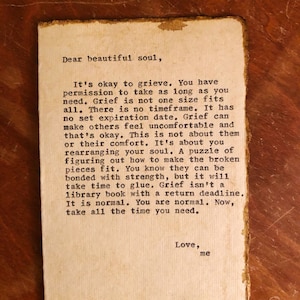 Dear beautiful soul,
It's okay to grieve. You have
permission to take as long as you
need. Grief is not one size fits
all. There is no timeframe. It has
no set expiration date. Grief can
make others feel uncomfortable and
that's okay. This is not about them
or their comfort. It's about you
rearranging your soul. A puzzle of
figuring out how to make the broken
pieces fit. You know they can be
bonded with strength, but it will
take time to glue. Grief isn't a
library book with a return deadline.
It is normal. You are normal. Now,
take all the time you need.
Love,
me